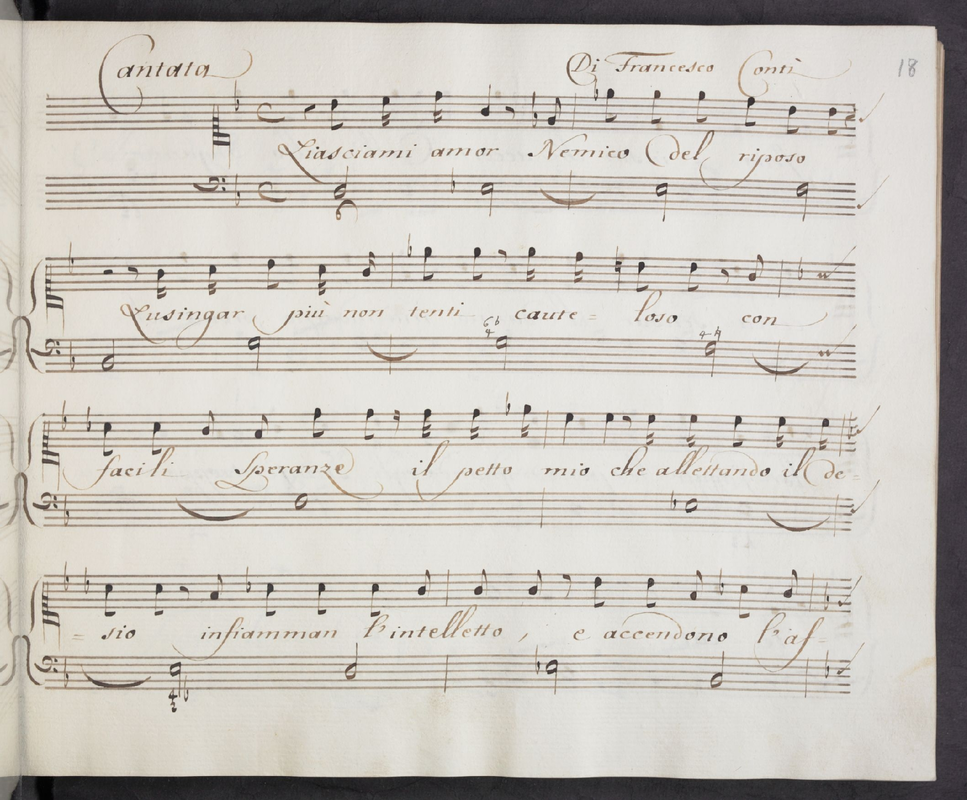 Cantata Di Francesco Conti 18
Liasciami amor Nemico del riposo
Lusingar più non tenti caute= loso con
6b
4 4 ♮
facili Speranze il petto mio che allettando il de=
=sio infiamman l'intelletto, e accendono l'af-